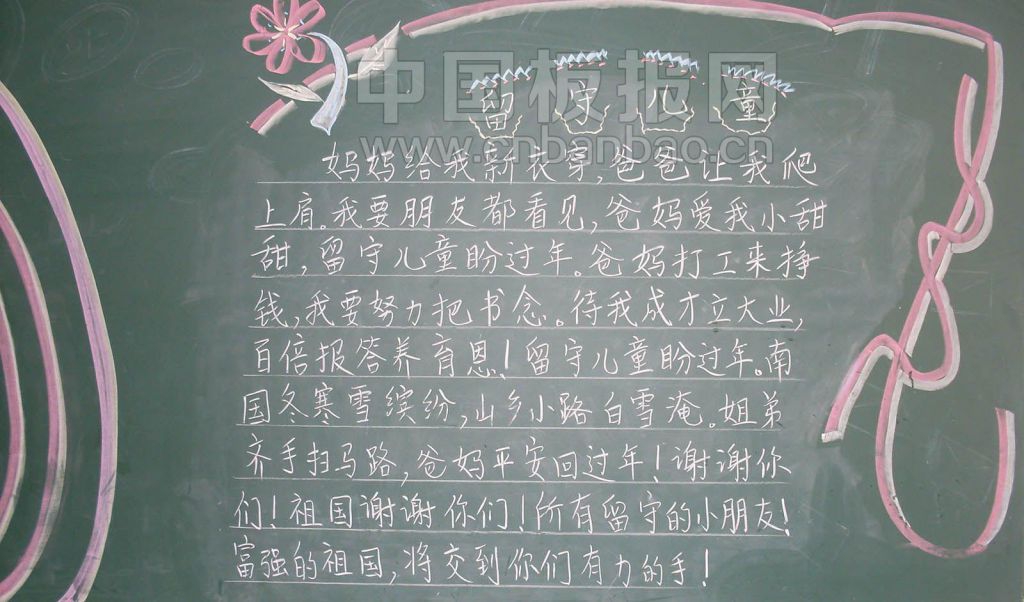 中国板报网
留守儿童
www.cnbanbao.cn
妈妈给我新衣穿,爸爸让我爬
上肩。我要朋友都看见,爸妈爱我小甜
甜,留守儿童盼过年。爸妈打工来挣
钱,我要努力把书念。待我成才立大业,
百倍报答养育恩!留守儿童盼过年。南
国冬寒雪缤纷,山乡小路白雪淹。姐弟
齐手扫马路,爸妈平安回过年!谢谢你
们!祖国谢谢你们!所有留守的小朋友!
富强的祖国,将交到你们有力的手!